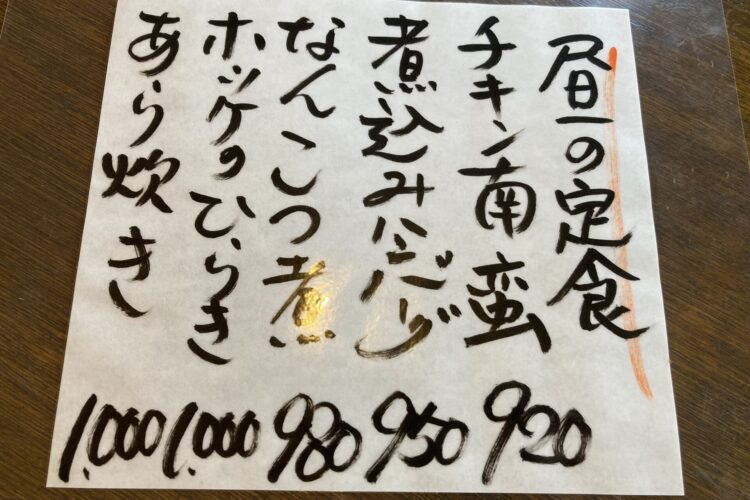 昼の定食
チキン南蛮 920
煮込みハンバーグ 950
なんこつ煮 980
ホッケのひらき 1,000
あら炊き 1,000